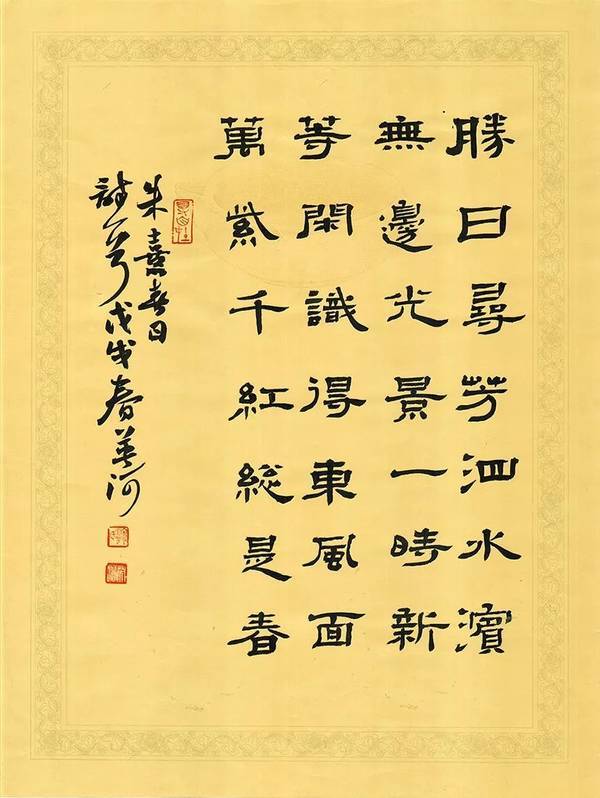 勝日尋芳泗水濱
無邊光景一時新
等閑識得東風面
萬紫千紅総是春
朱熹春日
詩一首戊戌春